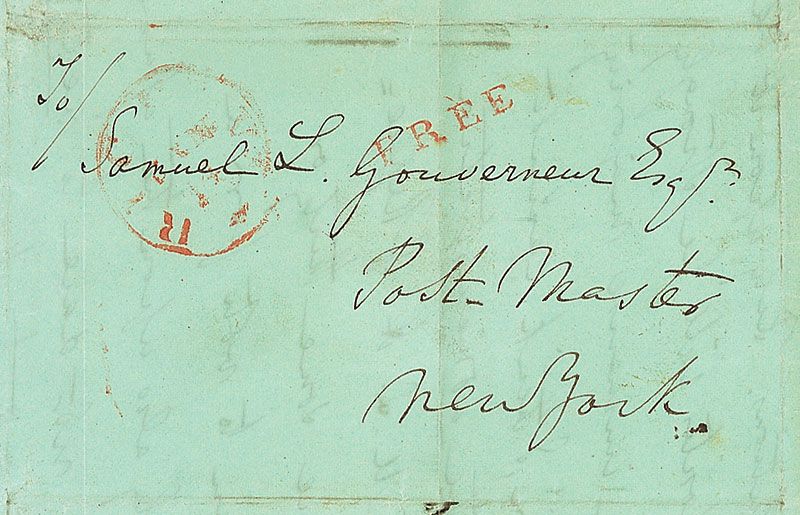 To/
FREE
Samuel L. Gouverneur Esqr.
Post-Master
New York